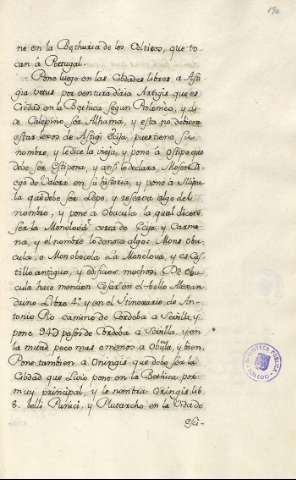 ne en la Bethuria de los Celticos, que to-
can à Portugal.
Pone luego en las Cibdades libres a Asti-
gia vetus por ventura diria Artigis que es
Cibdad en la Bethica segun Ptolomeo, y di-
ce Calepino ser Alhama, y esta no debiera
estar lexos de Astigi Ecija, pues tiene su
nombre, y le dice la vieja, y pone à Ostipo que
debe ser Estepona, y ansi lo declara Mosen Di-
ego de Valera en su historia, y pone à
la que debe ser Lepe, y reserva algo del
nombre, y pone a Obucula la qual dicen
ser la Moncloua cerca de Ecija, y Carmo-
na, y el nombre lo denota algo: Mons obu-
cula, o Monobocola o la Moncloua, y es Cas-
tillo antiguo, y edificios muchos. De Obu-
cula hace mencion Cesar en el bello Alexan-
drino Libro 4º y en el Itinerario de An-
tonio Pio camino de Cordoba a Sevilla y
pone 94D pasos de Cordoba a Sevilla, y en
la mitad, poco mas o menos a Obucula, y bien.
Pone tambien a Oningis que debe ser la
Cibdad que Livio pone en la Bethica por
muy principal, y le nombra Oringis lib.
8. belli Punici, y Plutarcho en la Vida de
BIBLIOTECA PUBLICA
TOLEDO